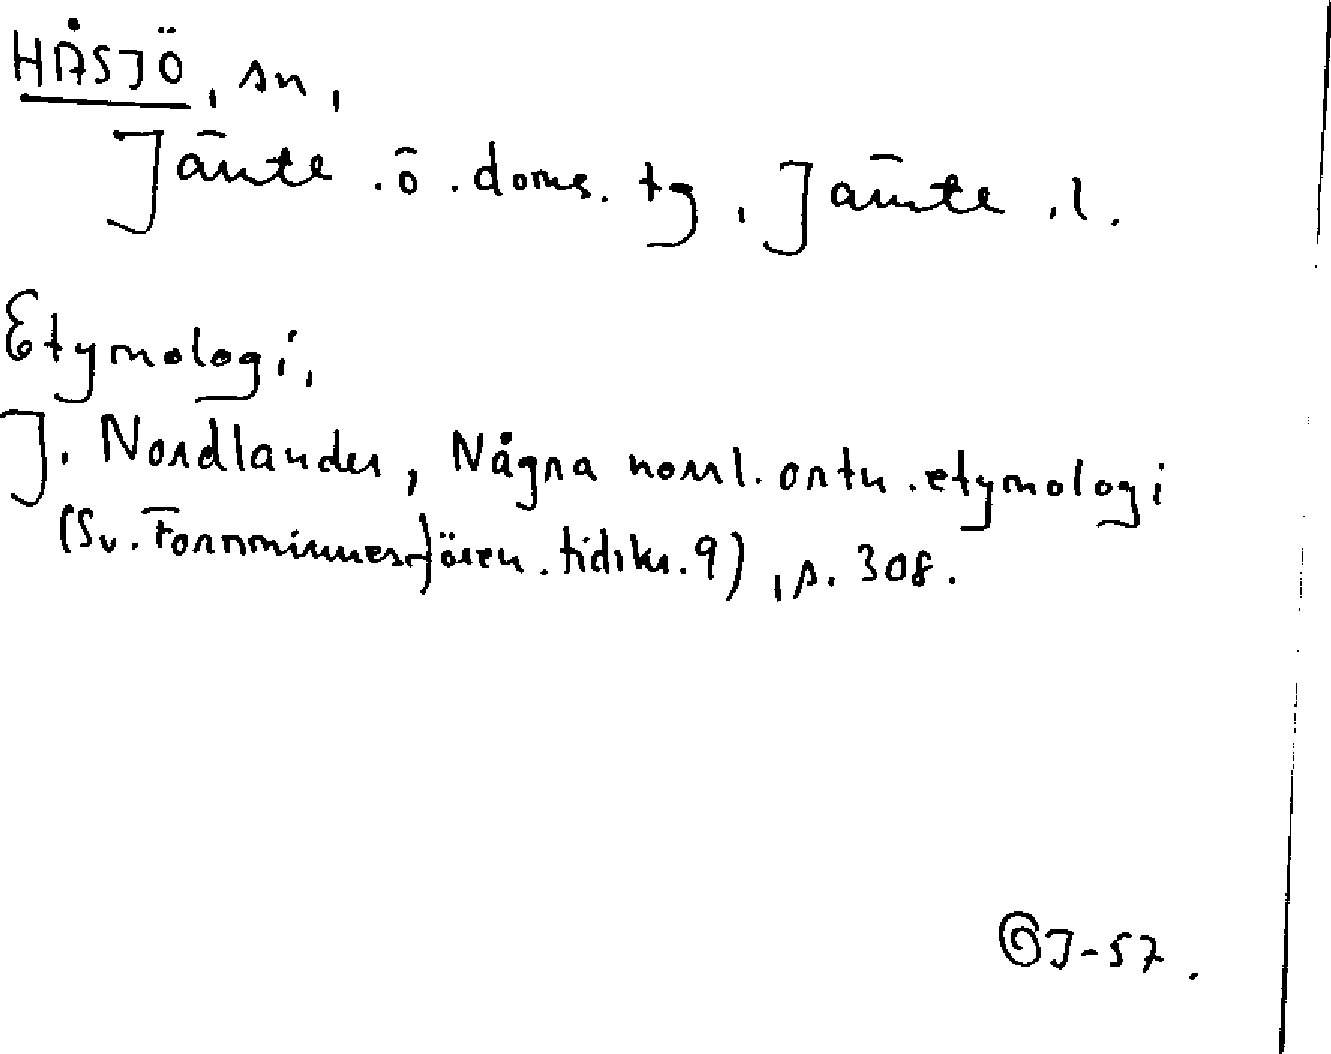 HÅSJÖ, sn,
Jämte. ö. doms. tg, Jämte. l.
Etymologi,
J. Nordlander, Några norrl. ortn. etymologi
(Sv. Fornminnesfören. tidskr. 9), s. 308.
GJ-57.